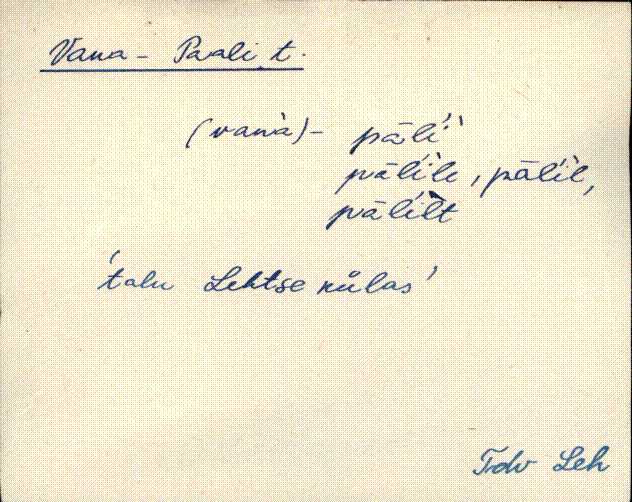 Vana-Paali t.
(vanà)- pāĺì
pāĺile, pāĺil,
pāĺilt
'talu Lehtse külas'
Trdv Leh